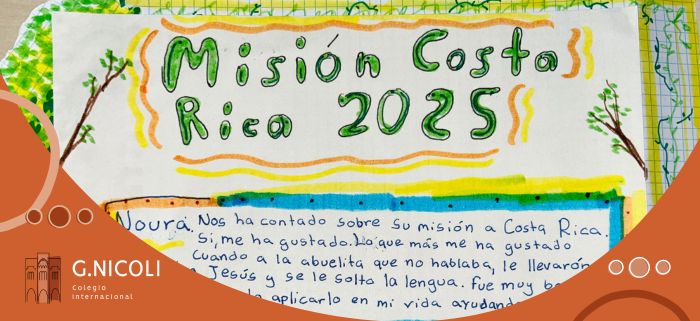 Misión Costa
Rica 2025
Noura. Nos ha contado sobre su misión a Costa Rica.
Si, me ha gustado. Lo que más me ha gustado
cuando a la abuelita que no hablaba, le llevarón
Jesús y se le solto la lengua. fue muy
aplicarlo en mi vida
G.NICOLI
Colegio
Internacional